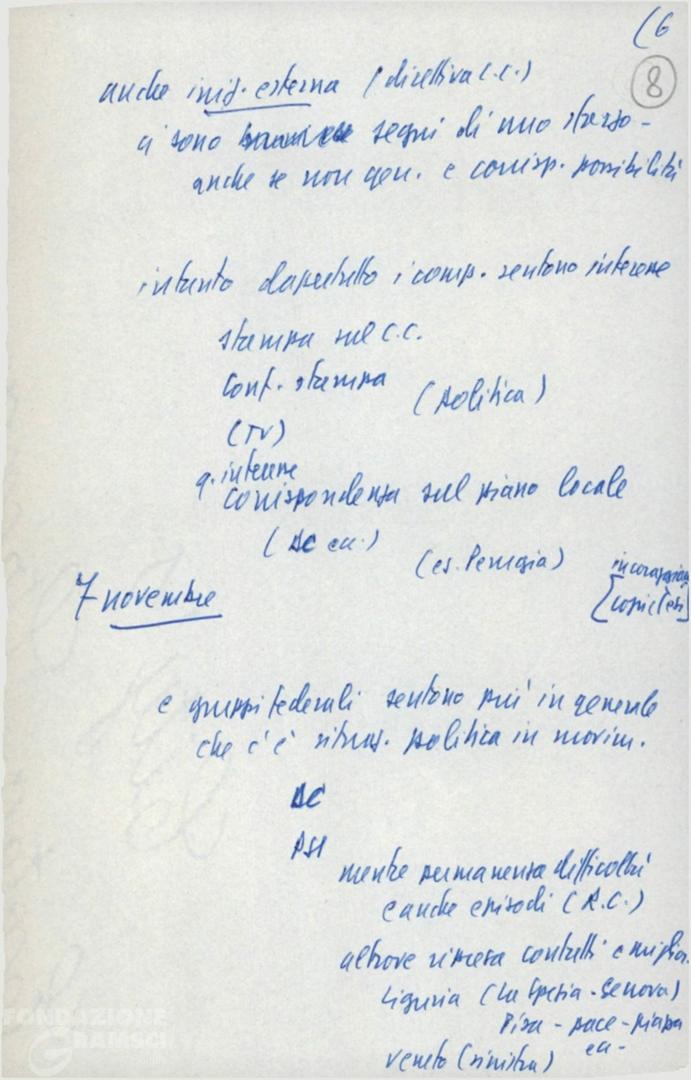 (6
8
anche iniz. esterna (direttiva C.C.)
ci sono segni di uno sforzo -
anche se non gen. e corrisp. possibilità
intanto dapertutto i comp. sentono interesse
stampa sul C.C.
conf. stampa
(politica)
(TV)
q. interne
corrispondenza sul piano locale
(DC ecc.)
(es. Perugia)
[copie tesi]
7 novembre
e gruppi federali sentono più in generale
che c'è situaz. politica in movim.
DC
PSI
mentre permanenza difficoltà
e anche episodi (R.C.)
altrove ripresa contatti e miglior.
Liguria (La Spezia - Genova)
Pisa - pace - piazza
ecc -
Veneto (sinistra)
FONDAZIONE
GRAMSCI